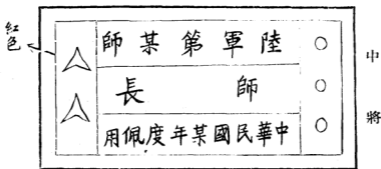 中將
陸軍第某師
師長
中華民國某年度佩用
紅色